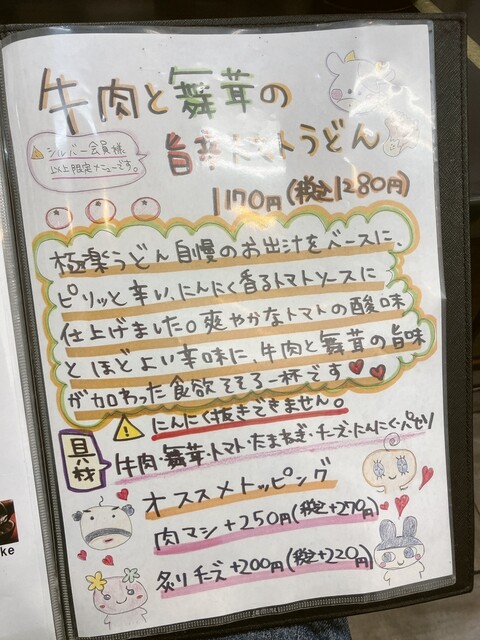 牛肉と舞茸の
旨辛トマトうどん
シルバー会員様
以上限定メニューです。
1170円(税込1280円)
極楽うどん自慢のお出汁をベースに、
ピリッと辛い、にんにく香るトマトソースに
仕上げました。爽やかなトマトの酸味
とほどよい辛味に、牛肉と舞茸の旨味
が加わった食欲そそる一杯です
にんにく抜きできません。
具材
牛肉・舞茸・トマト・たまねぎ・チーズ・にんにく・パセリ
オススメトッピング
肉マシ+250円(税込+270円)
炙りチーズ+200円(税込+220円)
ke